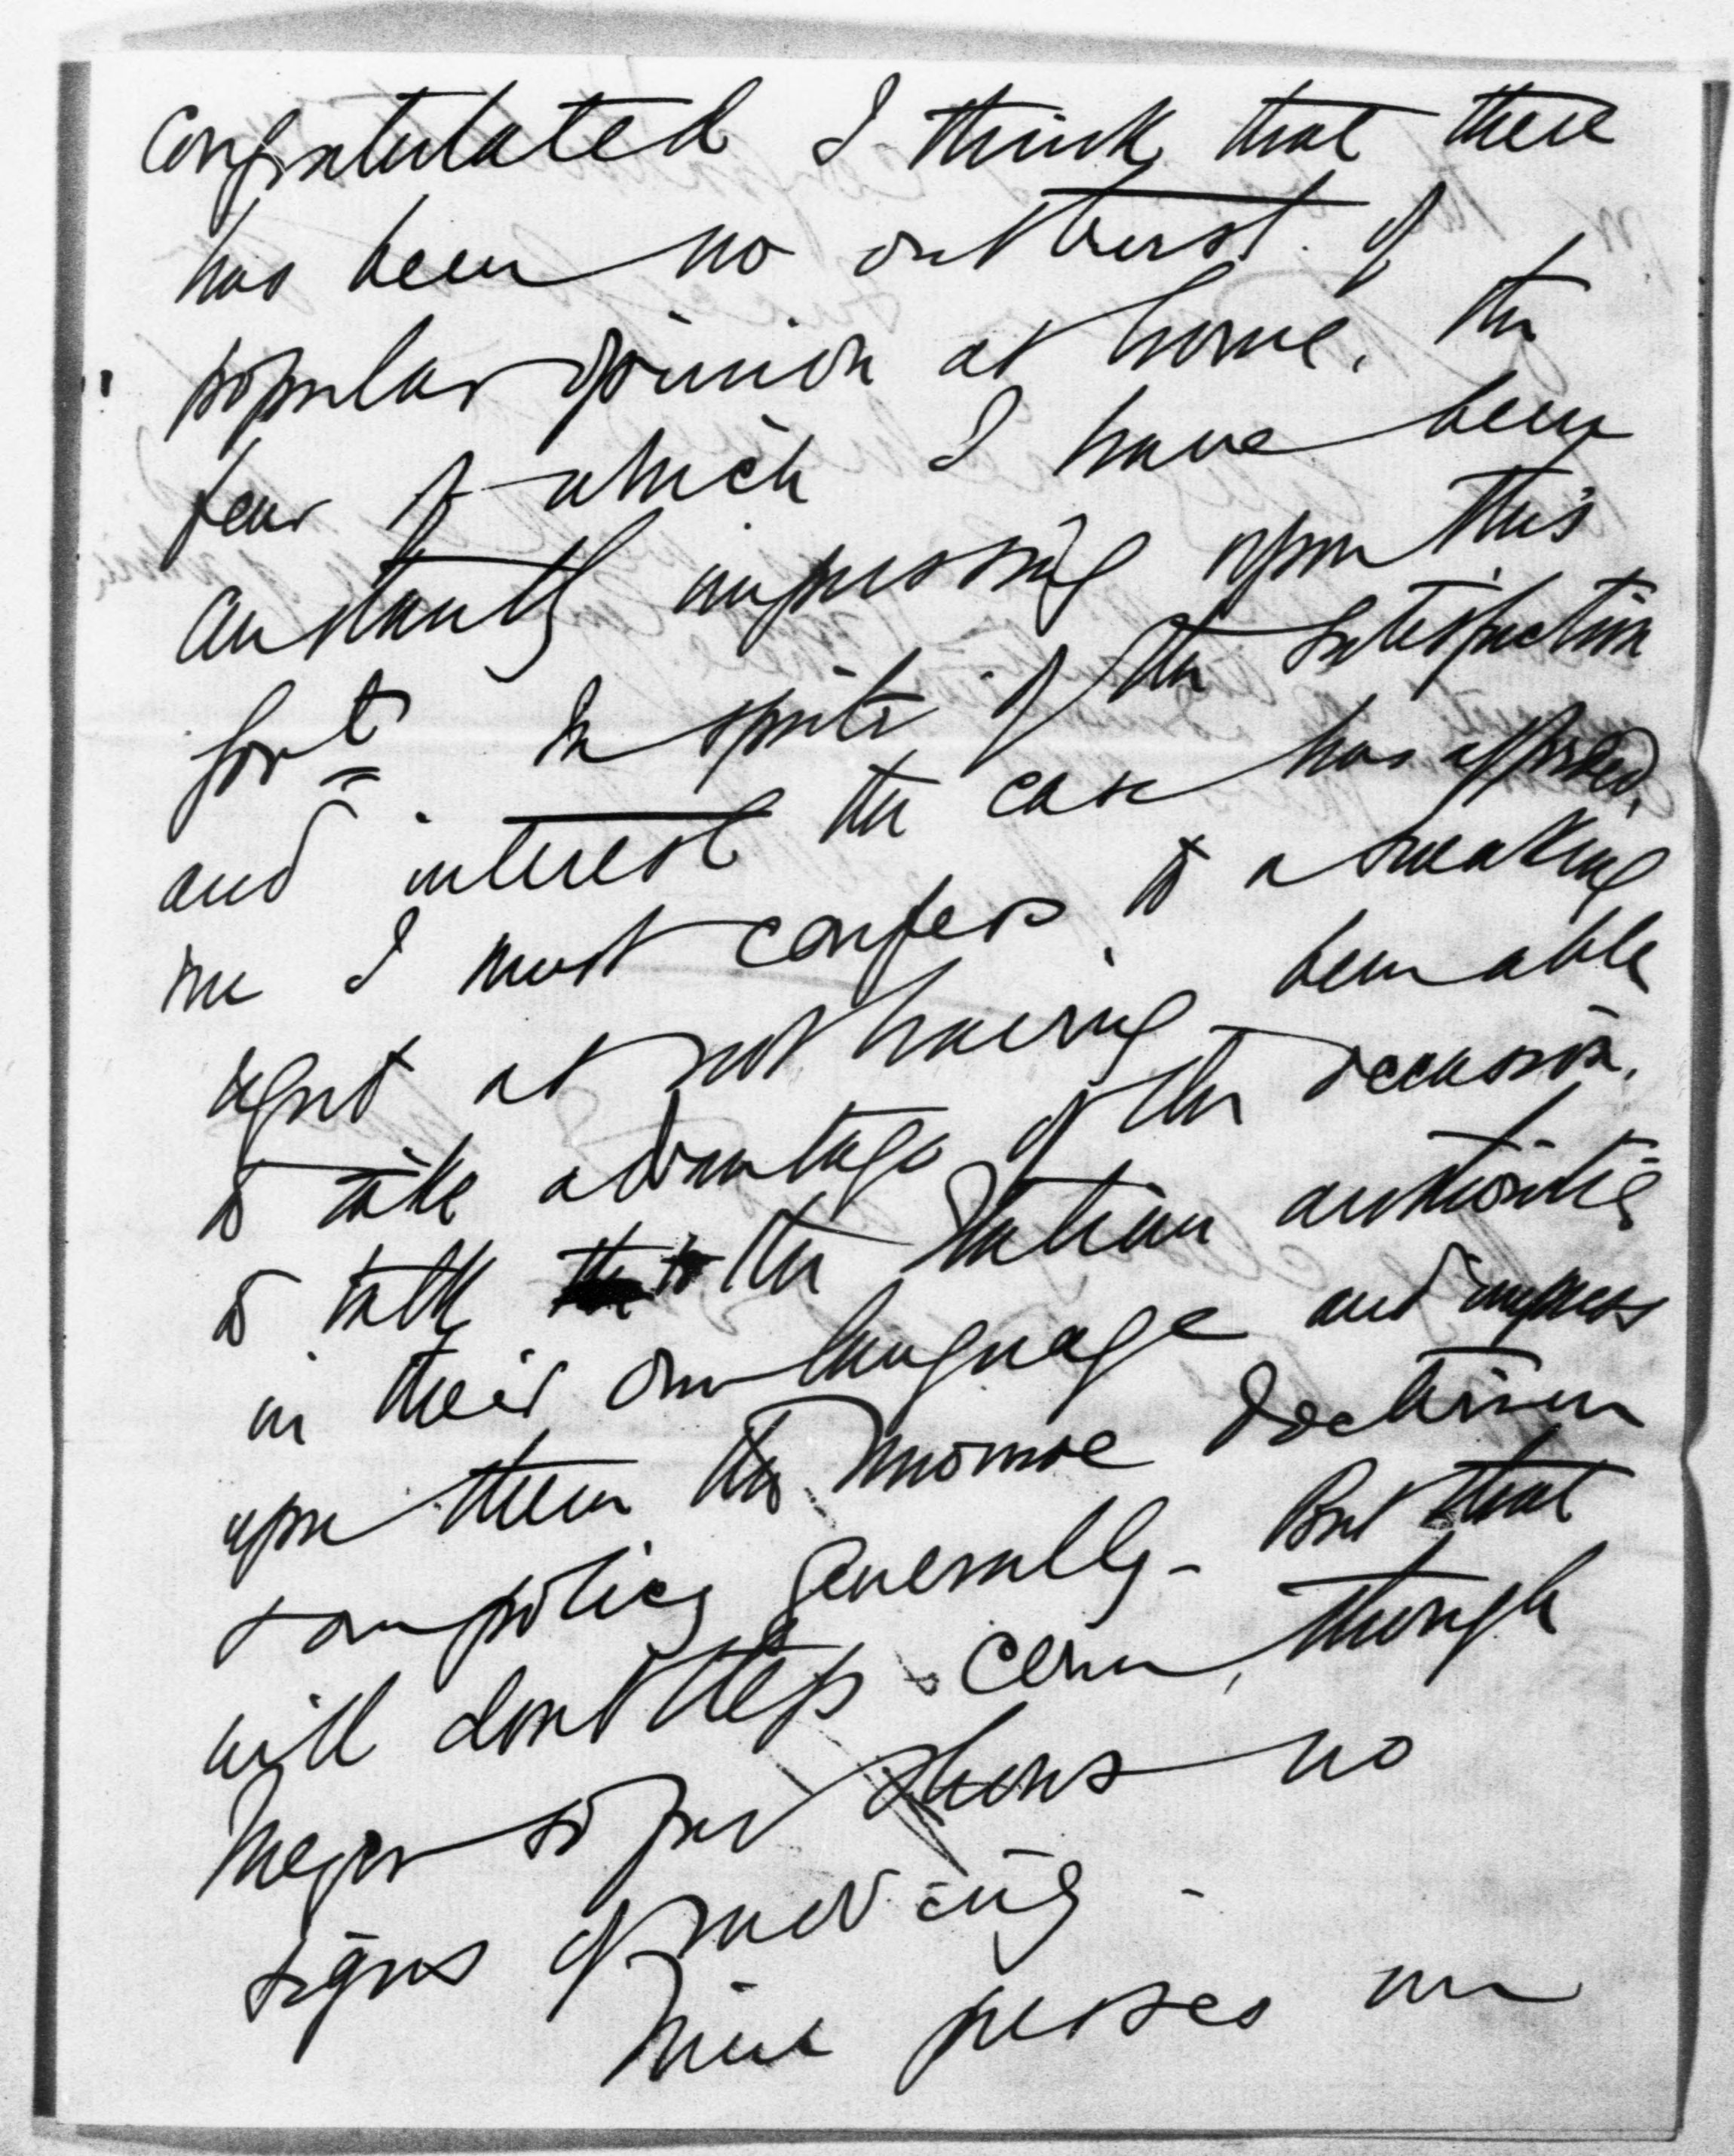 Congratulated I think that there
has been no outburst of
popular opinion at home, the
fear of which I have been
constantly impressing upon this
Govt. In spite of the satisfaction
and interest the case has afforded
me I must confess to a sneaking
regret at not having been able
to take advantage of the occasion.
to talk to the Italian authorities
in their own language and impress
upon them the Monroe doctrine
& our policy generally - But that
will doubtless come, though
Meyer so far shows no
signs of moving -
presses me